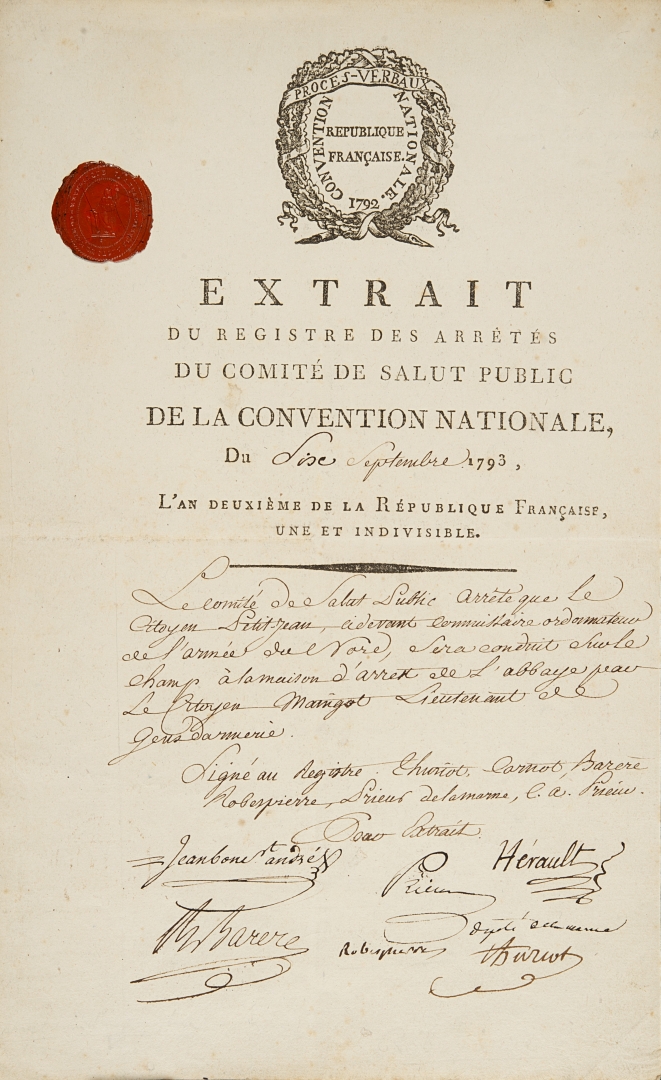 PROCES-VERBAUX
CONVENTION NATIONALE.
REPUBLIQUE
FRANÇAISE.
1792
EXTRAIT
DU REGISTRE DES ARRÊTÉS
DU COMITÉ DE SALUT PUBLIC
DE LA CONVENTION NATIONALE,
Du Sixe Septembre 1793,
L'AN DEUXIÈME DE LA RÉPUBLIQUE FRANÇAISE,
UNE ET INDIVISIBLE.
Le comité de Salut Public arrête que le
Citoyen Petitjean, cidevant commissaire ordonnateur
de l'armée du Nord, sera conduit sur le
champ à la maison d'arrêt de L'abbaye par
Le Citoyen Maingot Lieutenant de
Gensdarmerie.
Signé au Registre. Thuriot, Carnot, Barere
Roberpierre, Prieur delamarne, C. a. Prieur.
Pour Extrait.
Jeanbon St andré Hérault
Prieur
député de la marne
B Barere Robespierre Thuriot